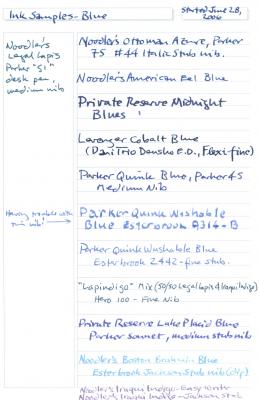 Ink Samples - Blue
Started June 28, 2006
Noodler's Legal Lapis
Parker "51" desk pen, medium nib
Noodler's Ottoman Azure, Parker
75 #44 Italic Stub nib.
Noodler's American Eel Blue
Private Reserve Midnight
Blues
Levenger Cobalt Blue
(Dani Trio Densho E.D., Flexi-fine)
Parker Quink Blue, Parker 45
Medium Nib
Having trouble with this nib!
Parker Quink Washable
Blue Esterbrook A314-B
Parker Quink Washable Blue
Esterbrook 2442-fine stub.
"Lapindigo" Mix (50/50 Legal Lapis & Iraqi Indigo)
Hero 100 - Fine Nib
Private Reserve Lake Placid Blue
Parker Sonnet, medium stub nib
Noodler's Boston Brahmin Blue
Esterbrook Jackson Stub nib (dip)
Noodler's Iraqi Indigo -
Noodler's Iraqi Indigo - Jackson Stub